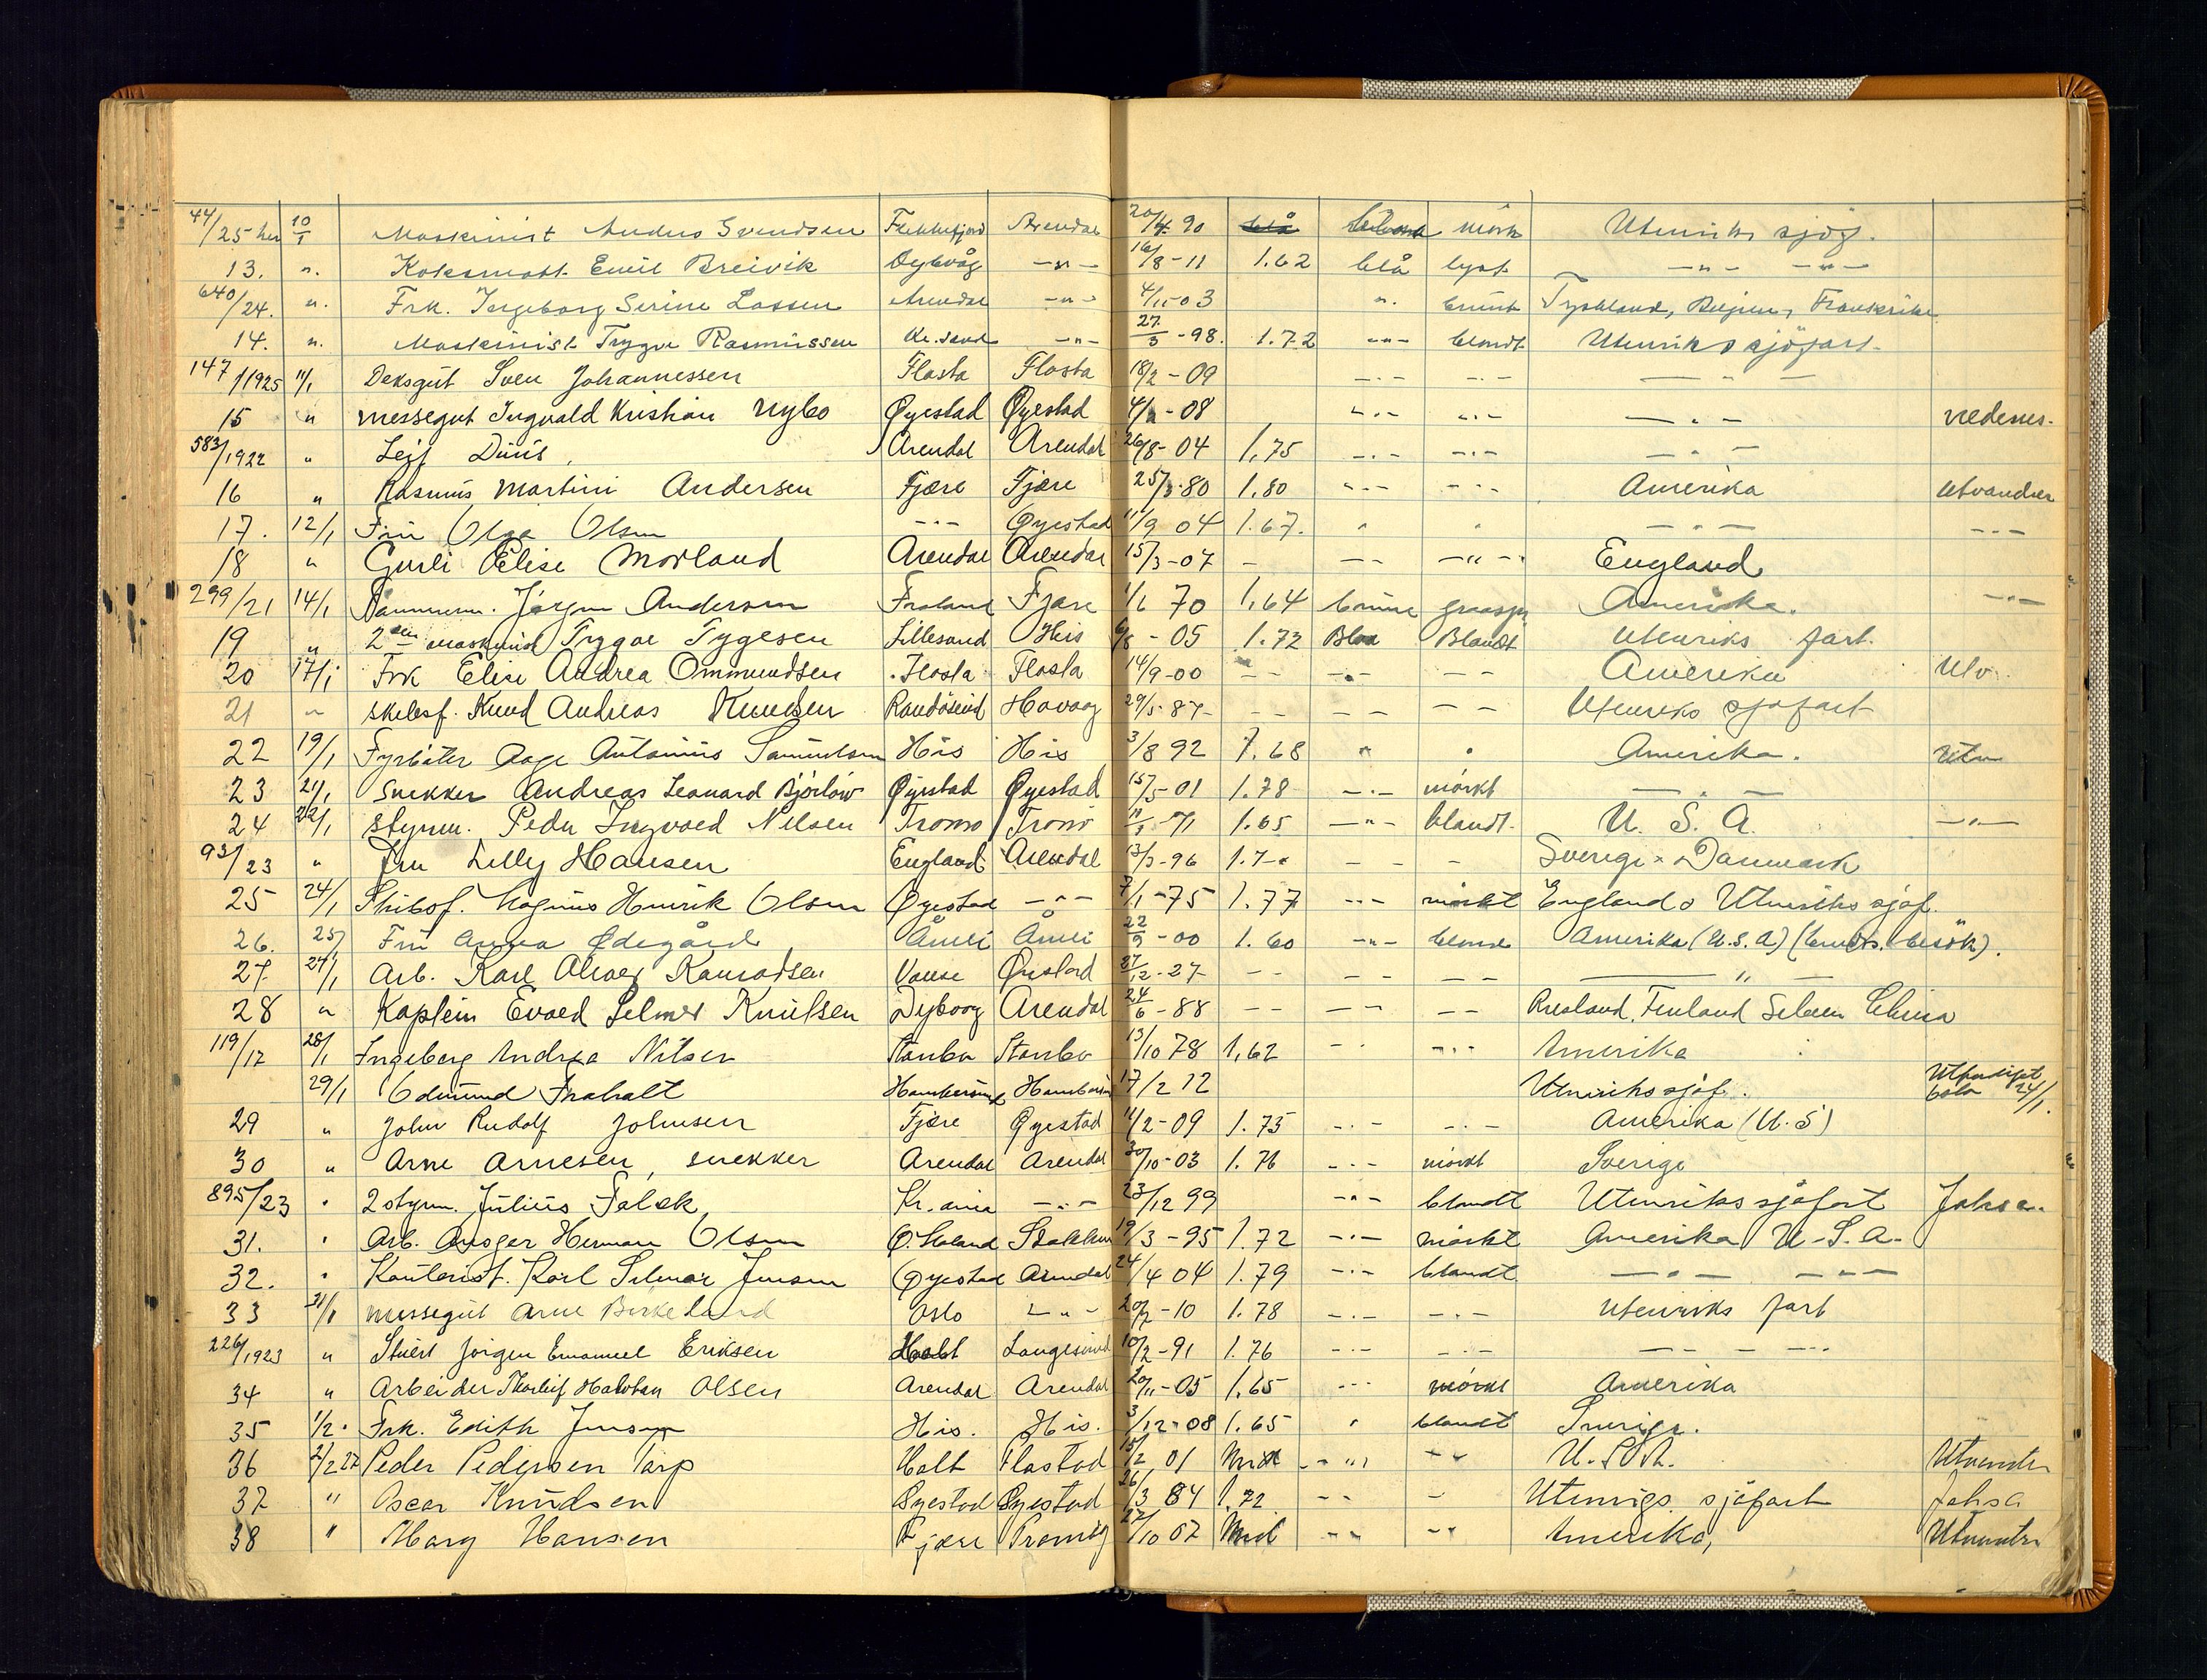 44/25 10/1 Maskinist Anders Svendsen Flekkefjord Arendal 20/4 90 blå mörk Utenriks sjøf.
13. ". Koksmatt Emil Breivik Dybvåg -"- 16/8-11 1.62 blå lyst -"- -"-
640/24. ". Frk. Ingeborg Serine Lassen Arendal -"- 4/11-03 ". brunt Tyskland, Belgien, Frankrike
14. ". Maskinist Trygve Rasmussen Kr.sand -"- 27/3-98. 1.72 -"- blondt Utenriks sjöfart
147/1925 11/1 Deksgut Sven Johannessen Flosta Flosta 18/2-09 -"- -"- -"-
15 " Messegut Ingvald Kristian Nybo Øyestad Øyestad 4/-08 -"- -"- -"- Nedenes.
583/1922 " Leif Duus Arendal Arendal 26/8-04 1,75 -"- -"- -"-
16 " Rasmus Martini Andersen Fjære Fjære 25/3-80 1.80 -"- -"- Amerika Utvandrer
17. 12/1 Fru Olga Olsen -"- Øyestad 11/9 04 1.67. " " -"- -"-
18 " Gurli Elise Morland Arendal Arendal 15/3-07 - -- -"- England
299/21 14/1 Tømmerm. Jørgen Andersen Froland Fjære 1/6 70 1,64 brune graaspr Amerika. -"-
19 " 2den maskinist Trygve Tygesen Lillesand His 6/8-05 1.72 Blaa Blondt Utenriks fart.
20 17/1 Frk Elise Andrea Ommundsen Flosta Flosta 14/9-00 -- -"- -- Amerika Utv.
21 " Skibsf. Knud Andreas Knudsen Randösund Høvaag 29/5-87 -- -- -- Utenriks sjøfart
22 19/1 Fyrbøter Aage Antonius Samuelsen His His 3/8 92 1.68 " " Amerika. Utv
23 21/1 Snekker Andreas Leonard Björlöw Øyestad Øyestad 15/5-01 1.78 -"- mörkt -"-
24 22/1 Styrm. Peder Ingvald Nilsen Tromö Tromö 11/-71 1.65 -"- blondt. U.S.A. -"-
93/23 " Fru Lilly Hansen England Arendal 13/3-96 1.7- - - - Sverige Danmark
25 24/1 Skibsf. Magnus Henrik Olsen Øyestad -"- 7/1-75 1.77 -"- mörkt England o Utenriks sjöf.
26. 25/ Fru Anna Ødegård Åmli Åmli 22/9-00 1.60 -"- blond Amerika (U.S.A) (besök).
27. 27/1 Arb. Karl Konradsen Øiestad 27/12-27 -- -- -- -"-
28 " Kaptein Evald Selmer Knutsen Dybvåg Arendal 24/6-88 -- -- -- Rusland, Finland China
119/17 28/1 Ingeborg Andrea Nilsen Stambo Stambo 13/10 78 1,62 -" -"- Amerika
29/1 Edmund Fraholt Hankøsund 17/2 12 Utenrikssjöf. Utferdiget
29 " John Rudolf Johnsen Fjære Øyestad 11/2-09 1.75 -"- -"- Amerika (U.S)
30 " Arne Arnesen, snekker Arendal Arendal 30/10-03 1.76 -"- mörkt Sverige
895/23 " 2 styrm. Julius Falck Kr.ania -"- 23/12 99 -"- blondt Utenriks sjøfart
31. " Arb. Ansgar Herman Olsen Stokken 19/3-95 1.72 -"- mörkt Amerika U-S.A-
32. " Kontorist. Karl Selmar Jensen Øyestad Arendal 24/4 04 1.79 -"- blondt -"- -"-
33 31/1 Messegut Arne Birkeland Oslo -"- 20/7-10 1.78 -"- -"- Utenriks fart
226/1923 " Stuert Jörgen Emanuel Eriksen Holt Langesund 10/2-91 1.76 -"- -"- -"- -"-
34 " Arbeider Thorleif Halvdan Olsen Arendal Arendal 20/11-05 1.65 -"- mörkt Amerika
35 1/2. Frk. Edith Jensen His. His. 3/12-08 1.65 " blondt Sverige.
36 2/2 27 Peder Pedersen Tarp Holt Flostad 15/2 01 Mid -"- -"- U.S.A. Utvandr
37 " Oscar Knudsen Øyestad Øyestad 26/3 84 1.72 -"- - Utenrigs sjöfart
38 " Mary Hansen Fjære Tromöy 27/10 07 Mid -"- -"- Amerika, Utvandr